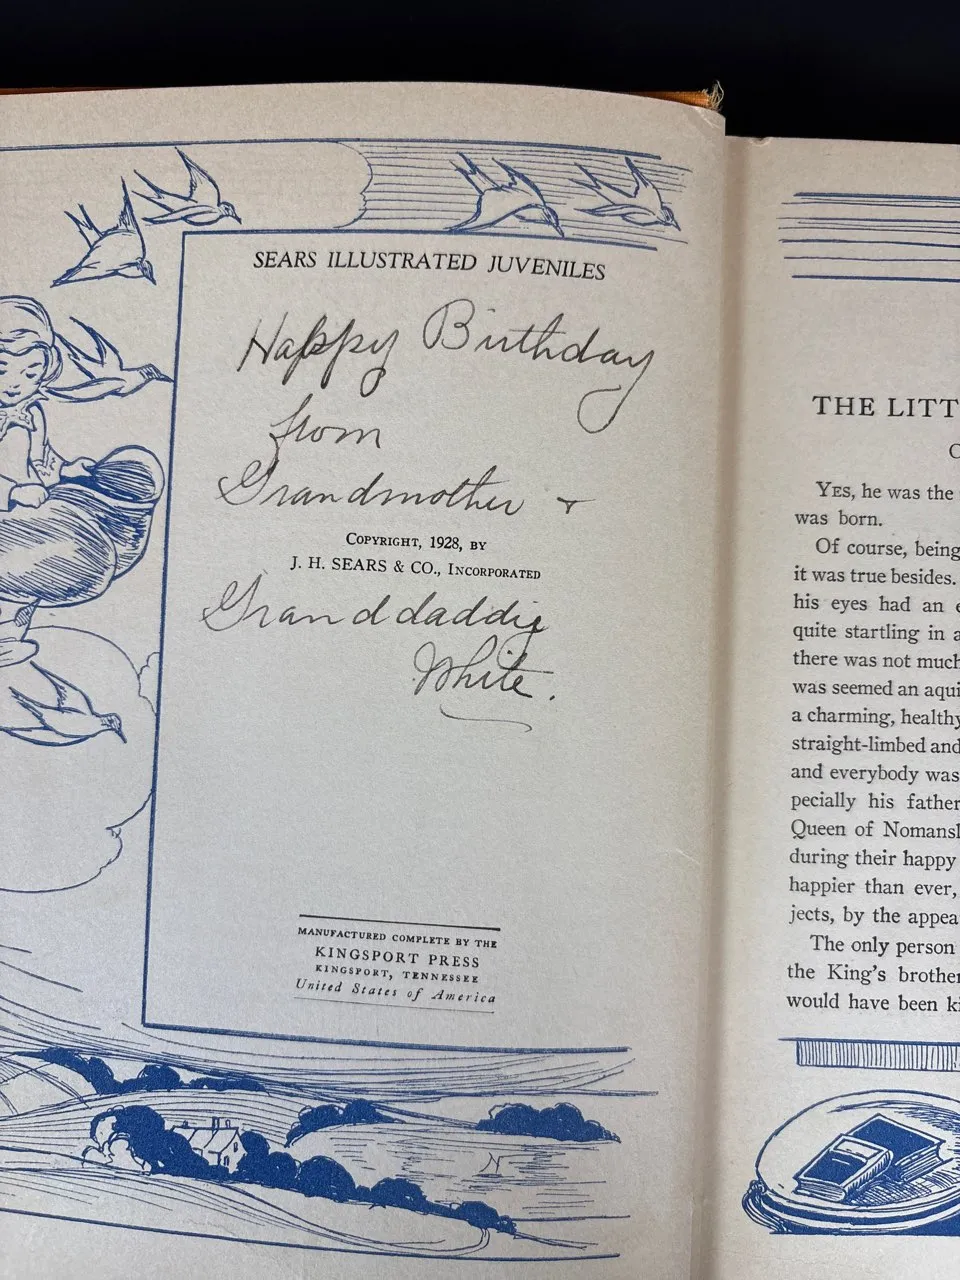 SEARS ILLUSTRATED JUVENILES
Happy Birthday
from
Grandmother &
COPYRIGHT, 1928, BY
J. H. SEARS & CO., INCORPORATED
Granddaddy
White.
MANUFACTURED COMPLETE BY THE
KINGSPORT PRESS
KINGSPORT, TENNESSEE
United States of America
THE LITT
YES, he was the
was born.
Of course, being
it was true besides.
his eyes had an
quite startling in a
there was not much
was seemed an aqui
a charming, healthy
straight-limbed and
and everybody was
pecially his father
Queen of Nomansl
during their happy
happier than ever,
jects, by the appea
The only person
the King's brother
would have been ki